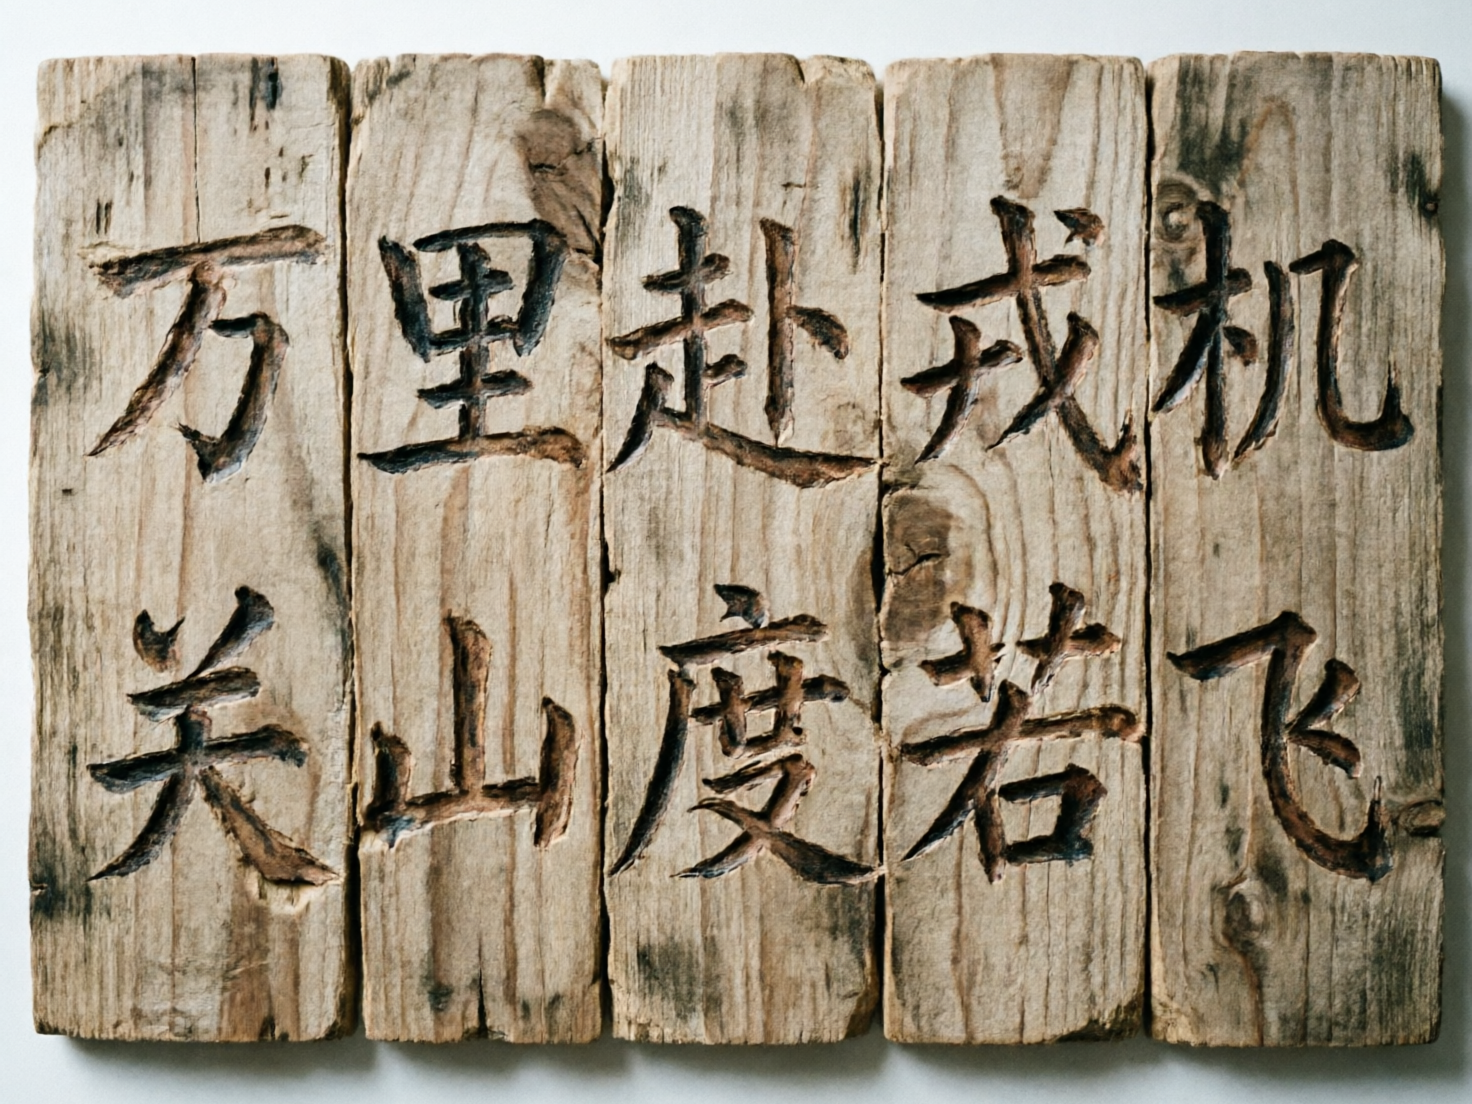 万里赴戎机
关山度若飞